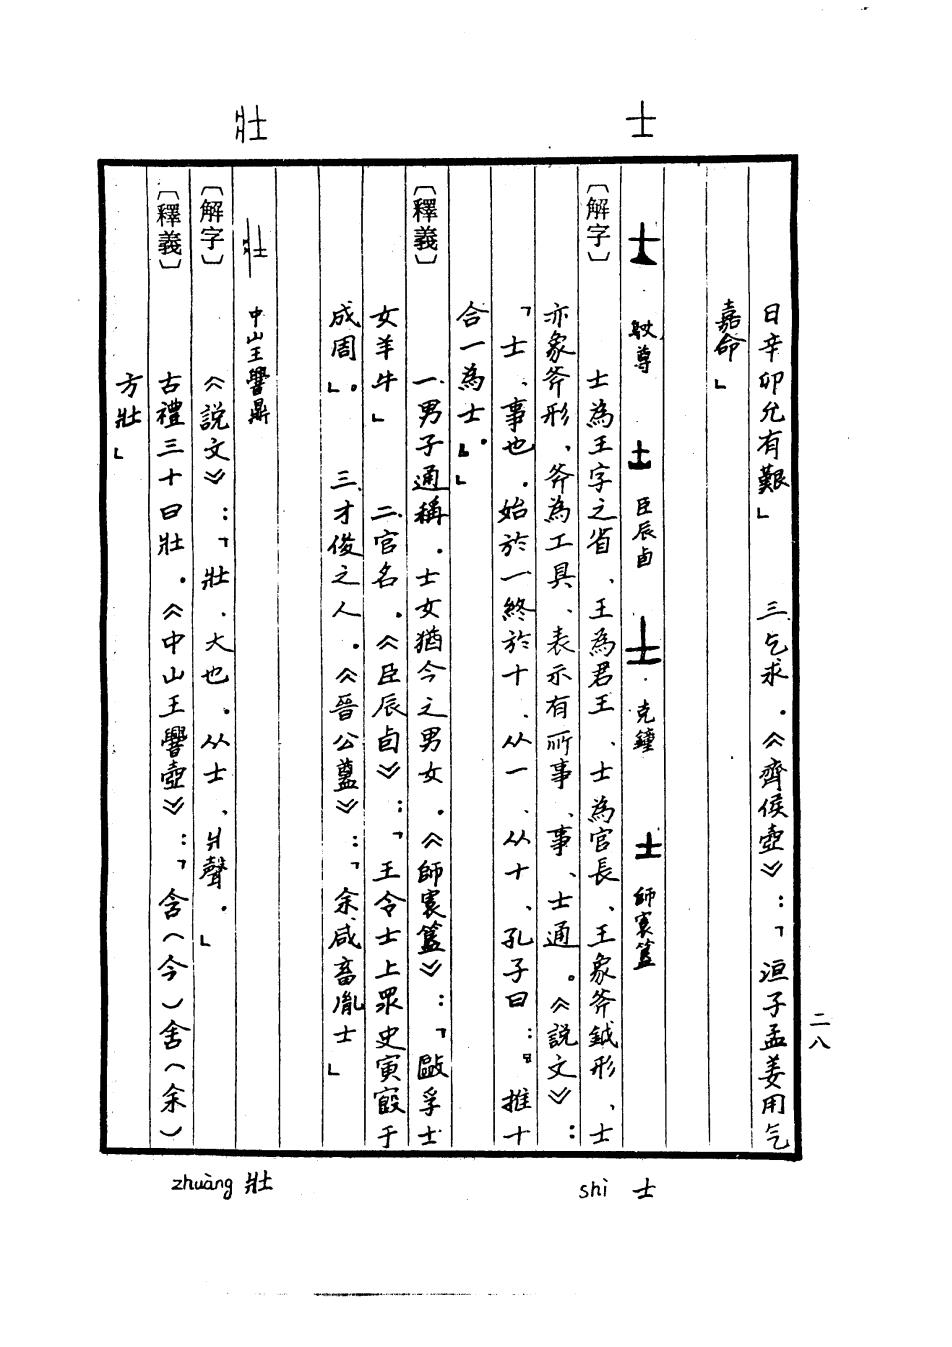 士
壯
日辛卯允有艱」 三、乞求。《齊侯壺》：「洹子孟姜用乞
嘉命」
士 㝬尊 士 臣辰卣 士 克鐘 士 師㝨簋
〔解字〕 士為王字之省、王為君王、士為官長、王象斧鉞形、士
亦象斧形、斧為工具、表示有所事、事、士通。《說文》：
「士、事也。始於一終於十、从一、从十、孔子曰：『推十
合一為士』。」
〔釋義〕 一、男子通稱。士女猶今之男女。《師㝨簋》：「敺孚士
女羊牛」 二、官名。《臣辰卣》：「王令士上眔史寅殷于
成周」。 三、才俊之人。《晉公𥂴》：「余咸畜胤士」
壯 中山王嚳鼎
〔解字〕 《說文》：「壯、大也。从士、爿聲。」
〔釋義〕 古禮三十曰壯。《中山王嚳壺》：「含（今）舍（余）
方壯」
二八
shì 士
zhuàng 壯